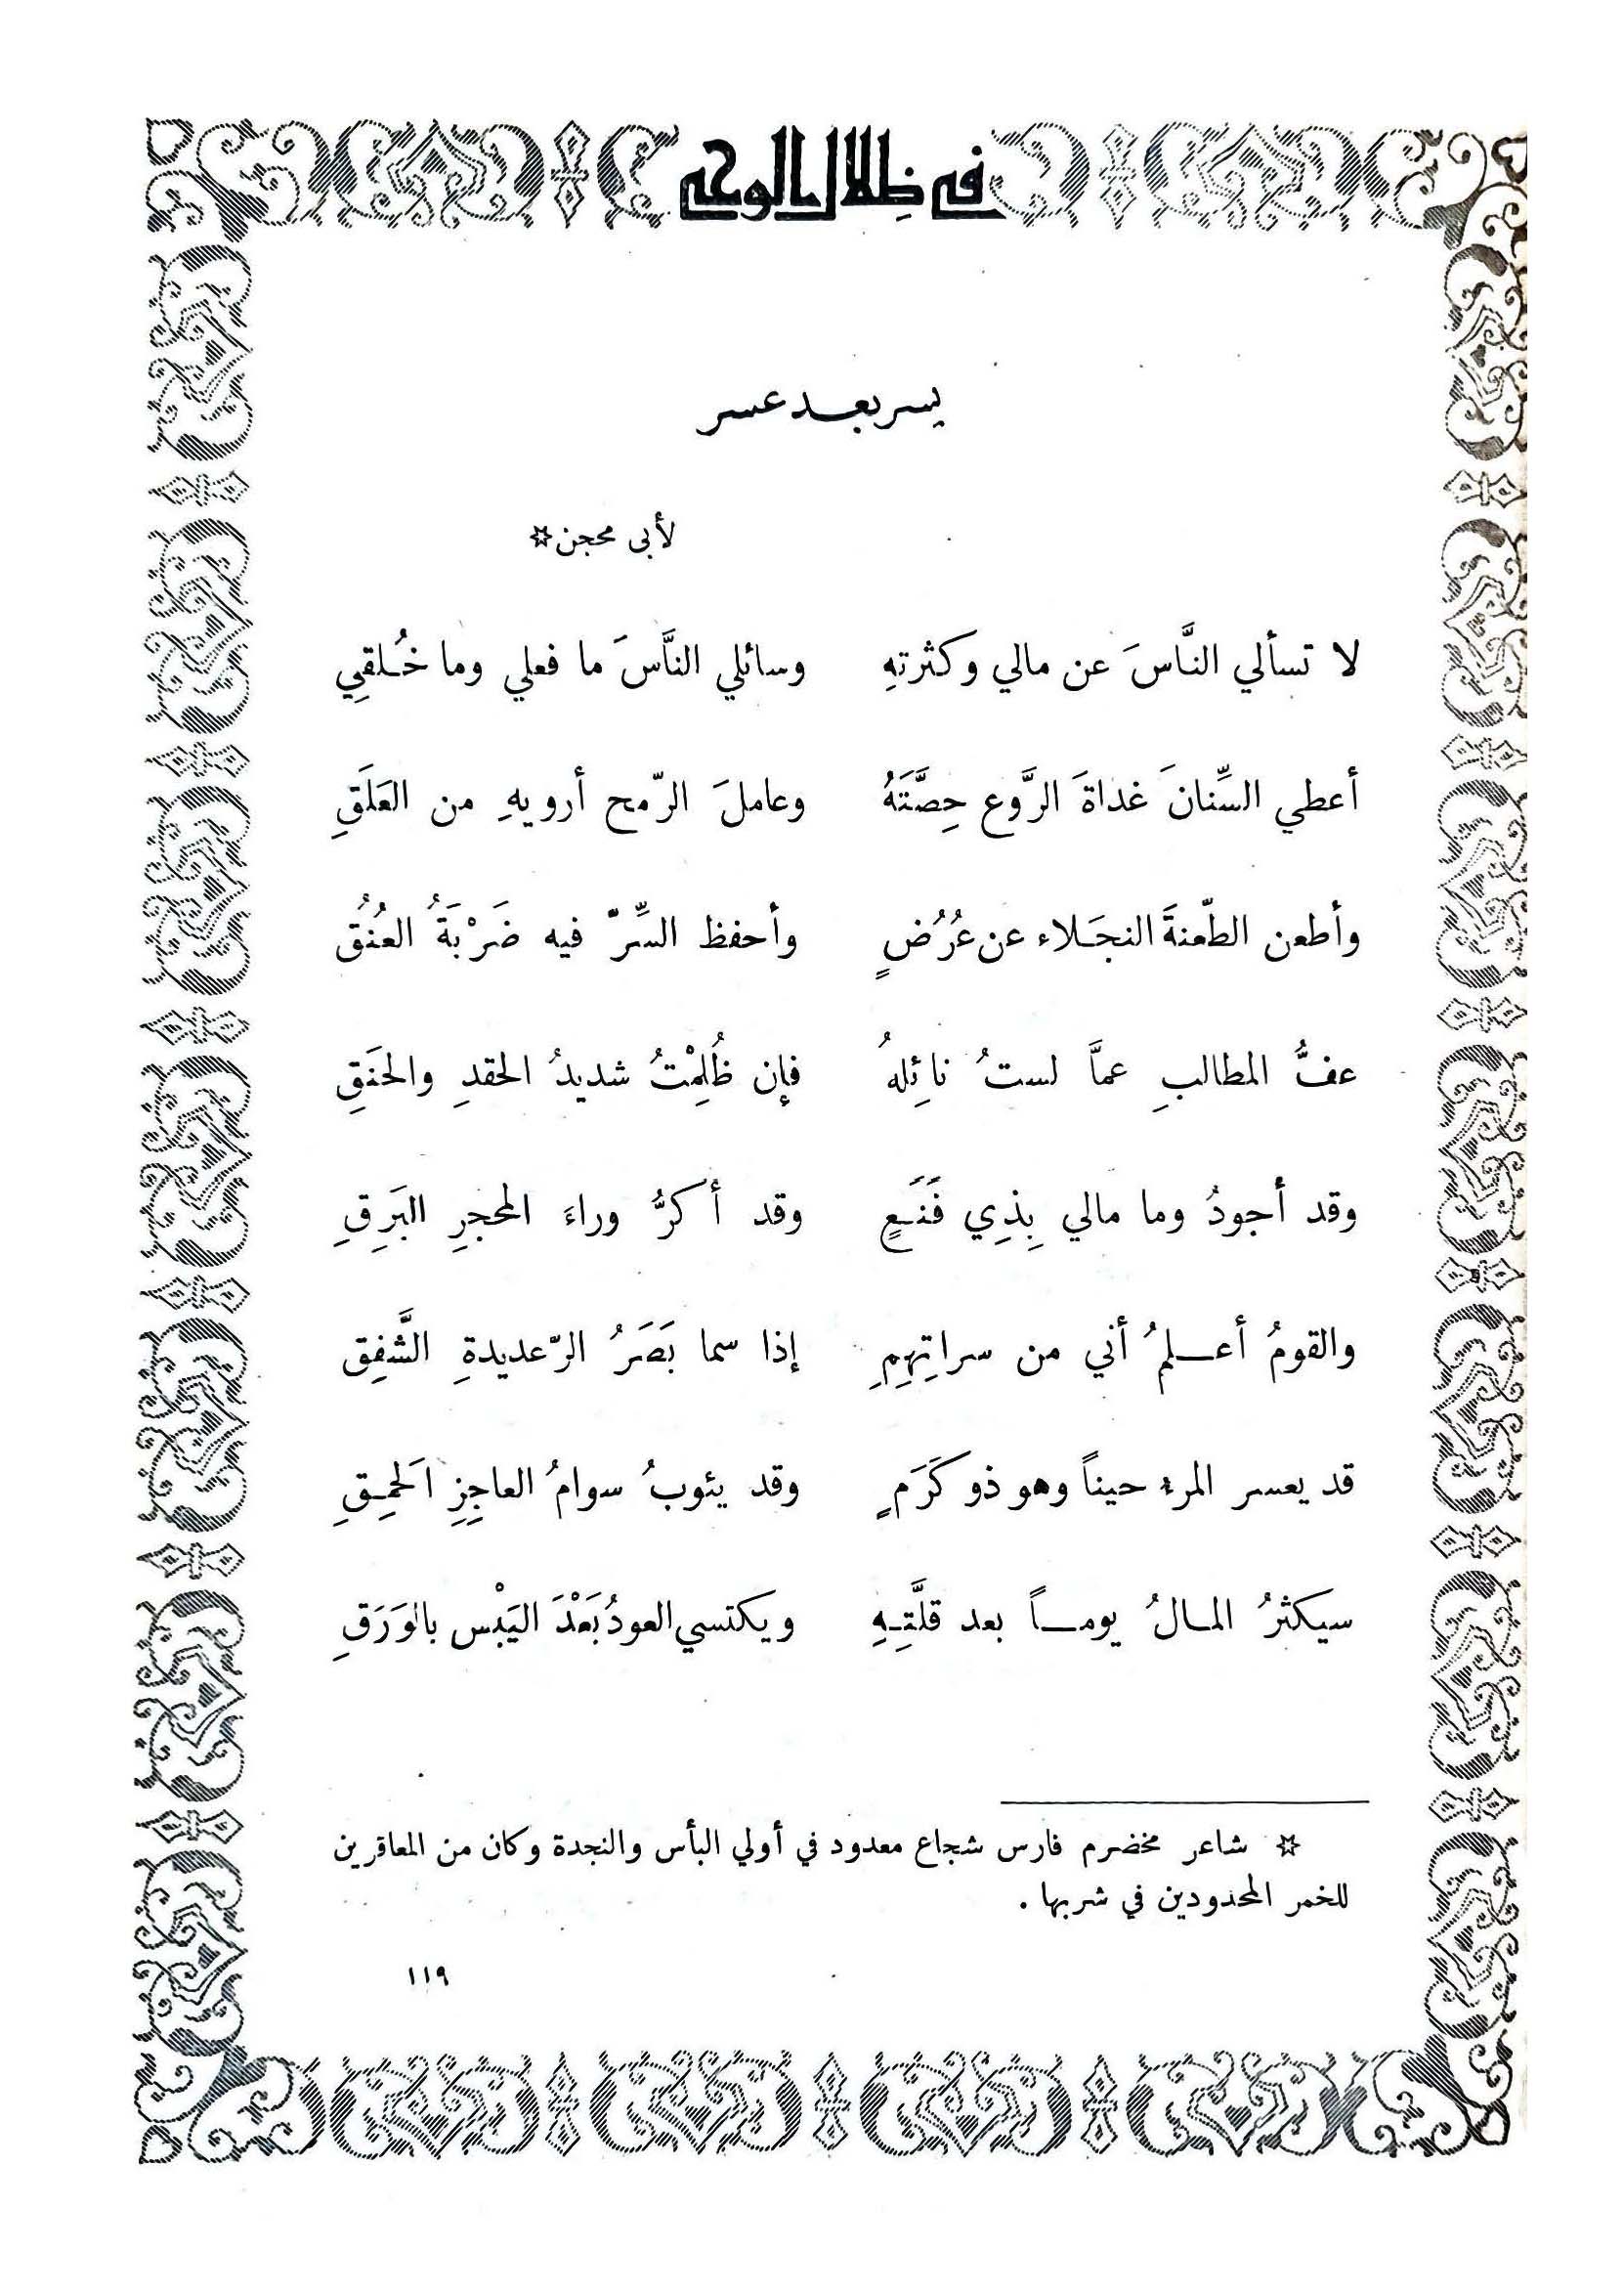 في ظلال الوحي
يسر بعد عسر
لأبي محجن☆
لا تسألي النَّاسَ عن مالي وكثرتهِ وسائلي النَّاسَ ما فعلي وما خُلقِي
أعطي السِّنانَ غداةَ الرَّوع حِصَّتَهُ وعاملَ الرّمح أرويهِ من العَلَقِ
وأطعن الطّعنةَ النجَلاء عن عُرُضٍ وأحفظ السِّرَّ فيه ضَرْبَةُ العُنُقِ
عفُّ المطالبِ عمَّا لستُ نائِلهُ فإن ظُلِمْتُ شديدُ الحقدِ والحنَقِ
وقد أجودُ وما مالي بِذِي فَنَعٍ وقد أكرُّ وراءَ المحجرِ البَرِقِ
والقومُ أعلمُ أني من سراتِهِمِ إذا سما بَصَرُ الرّعديدةِ الشَّفِقِ
قد يعسر المرء حيناً وهو ذو كَرَمٍ وقد يئوبُ سوامُ العاجِزِ الَحمِقِ
سيكثرُ المالُ يوماً بعد قلَّتِهِ ويكتسي العودُ بَعْدَ اليَبْسِ بالوَرَقِ
☆ شاعر مخضرم فارس شجاع معدود في أولي البأس والنجدة وكان من المعاقرين
للخمر المحدودين في شربها .
١١٩